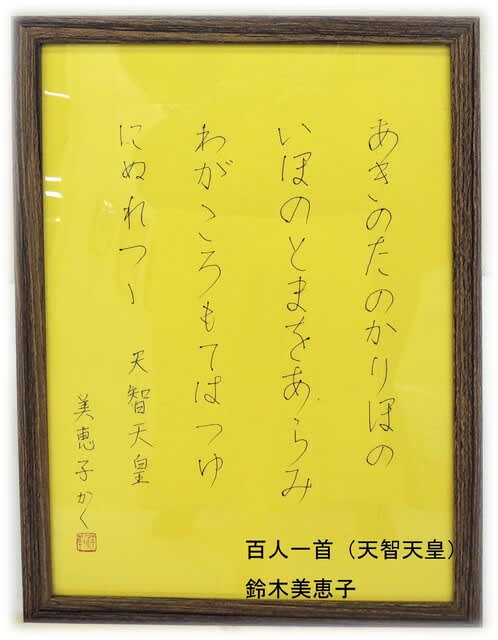 あきのたのかりほの
いほのとまをあらみ
わがころもてはつゆ
にぬれつゝ
天智天皇
美恵子かく
百人一首（天智天皇）
鈴木美恵子